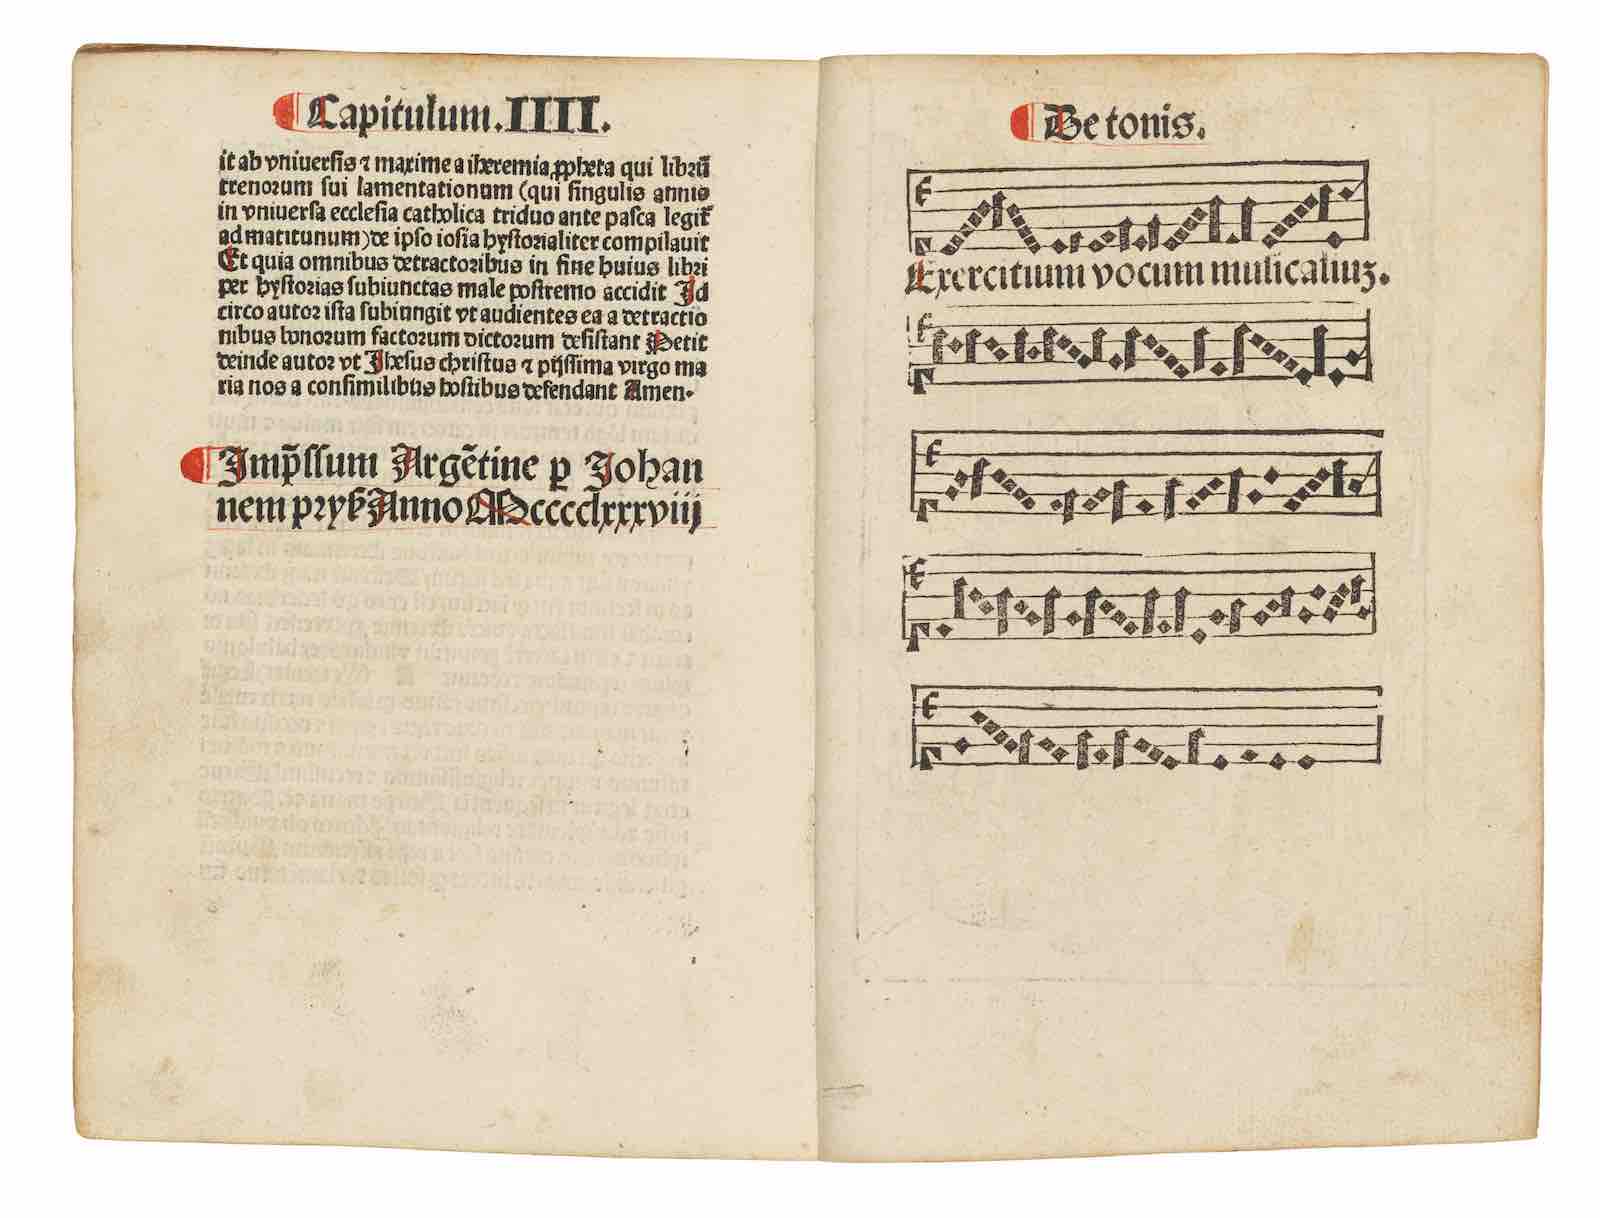 Capitulum.IIII.
it ab vniuersis ⁊ maxime a iheremia ꝓpheta qui librū
trenorum sui lamentationum (qui singulis annis
in vniuersa ecclesia catholica triduo ante pasca legit᷑
ad matitunum) de ipso iosia hystorialiter compilauit
Et quia omnibus detractoribus in fine huius libri
per hystorias subiunctas male postremo accidit Id
circo autor ista subiungit vt audientes ea a detractio
nibus bonorum factorum dictorum desistant Petit
deinde autor vt Jhesus christus ⁊ pijssima virgo ma
ria nos a consimilibus hostibus defendant Amen.
Imp̄ssum Argētine ꝑ Johan
nem pryß Anno Mcccclxxxviij
De tonis.
Exercitium vocum musicaliuꝫ.